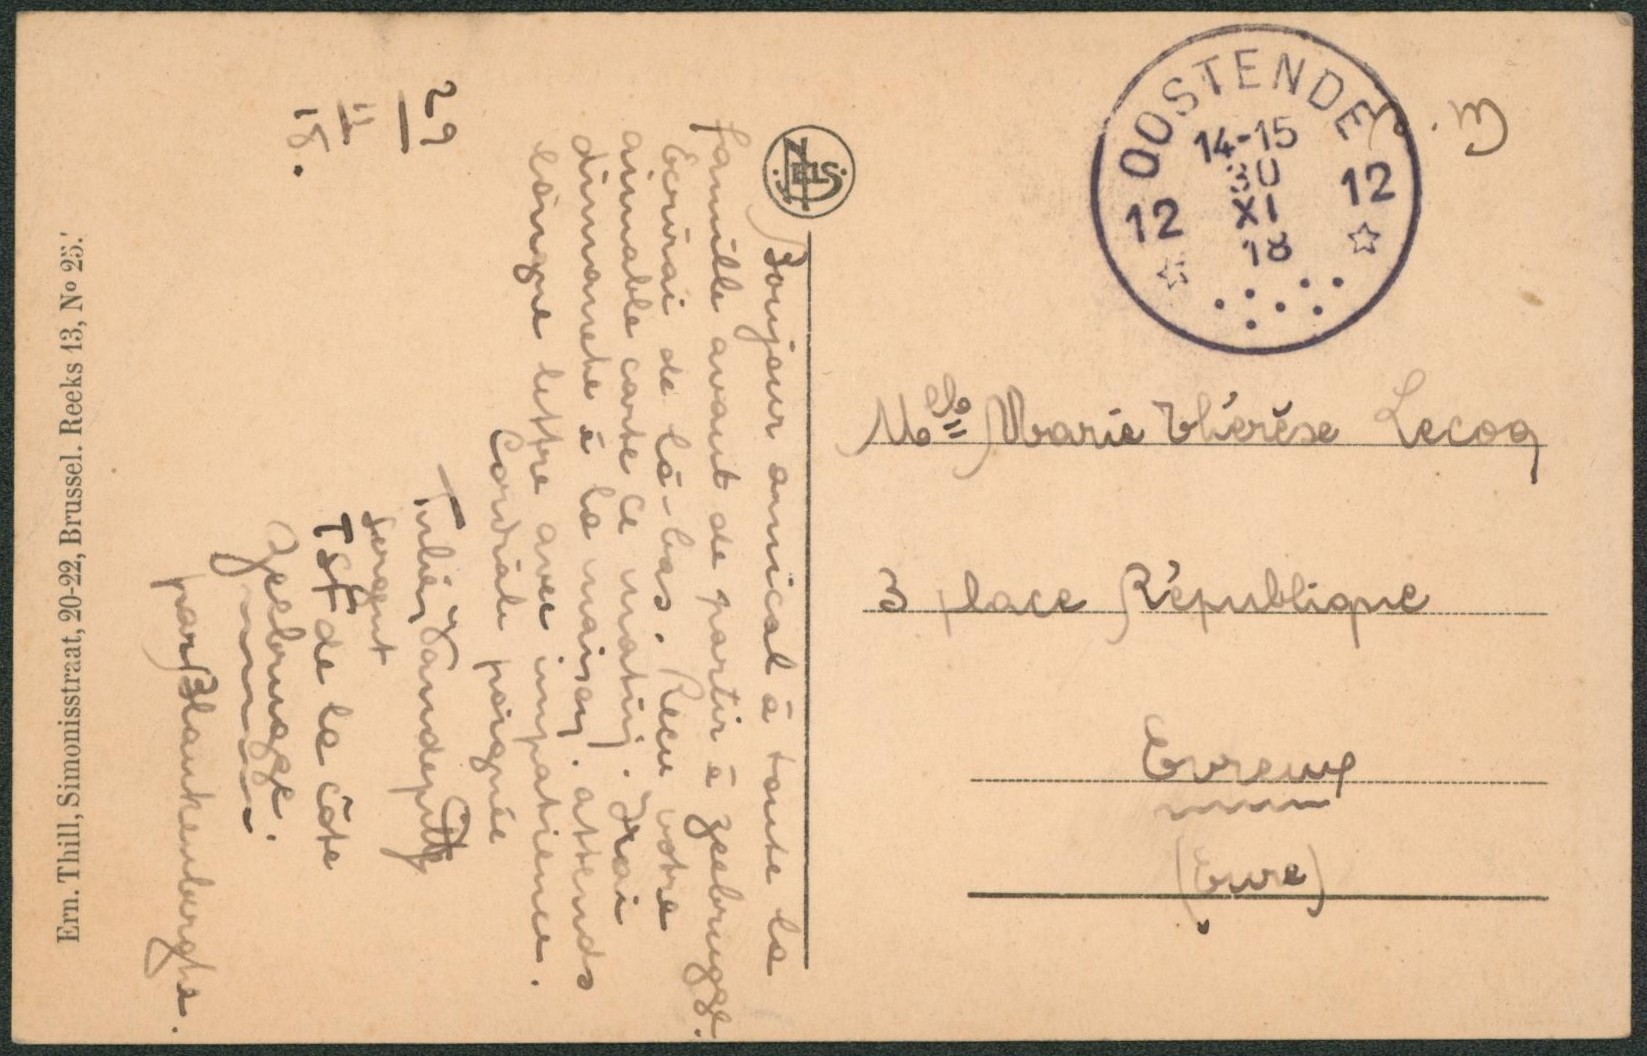 29
11
18.
Bonjour amical à toute la
famille avant de partir à Zeebrugge.
Ecrirai de là-bas. Recu votre
aimable carte ce matin. Irai
dimanche à la maison. attends
longue lettre avec impatience.
Cordiale poignée
Julien Vandeputte
Sergent
TSF de la côte
Zeebrugge.
par Blankenberghe.
Ern. Thill, Simonisstraat, 20-22, Brussel. Reeks 13, No 25.
NELS
OOSTENDE
14-15
30
XI
18
12 12
S.M
Melle Marie Thérèse Lecoq
3 place République
Evreux
(Eure)